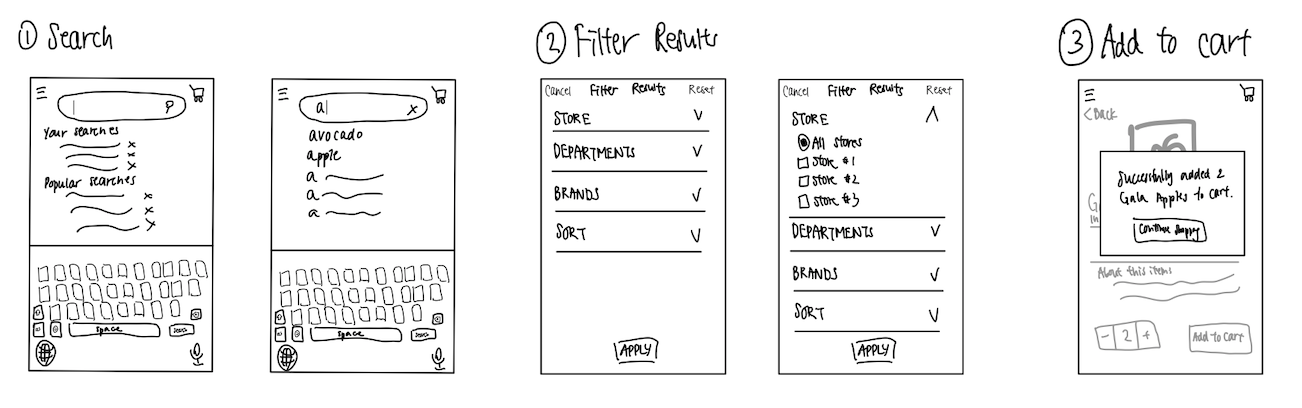 ① Search
Your searches
x
x
x
Popular searches
x
x
x
space
search
a
x
avocado
apple
a
a
a
space
search
② Filter Results
Cancel Filter Results Reset
STORE
DEPARTMENTS
BRANDS
SORT
APPLY
Cancel Filter Results Reset
STORE
All stores
Store #1
Store #2
Store #3
DEPARTMENTS
BRANDS
SORT
APPLY
③ Add to cart
< Back
Successfully added 2
Gala Apples to cart.
Continue Shopping
G
In
About this items
- 2 +
Add to Cart